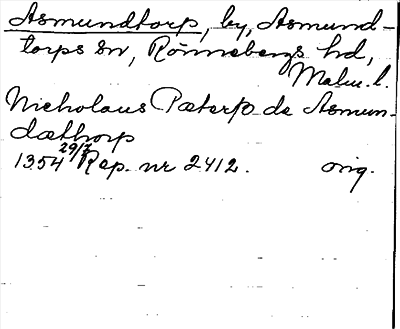 Asmundtorp, by, Asmund-
torps sn, Rönnebergs hd,
Malm. l.
Nicholaus Pæter de Asmun-
dæthorp
1354 29/7 Rep. nr 2412. orig.